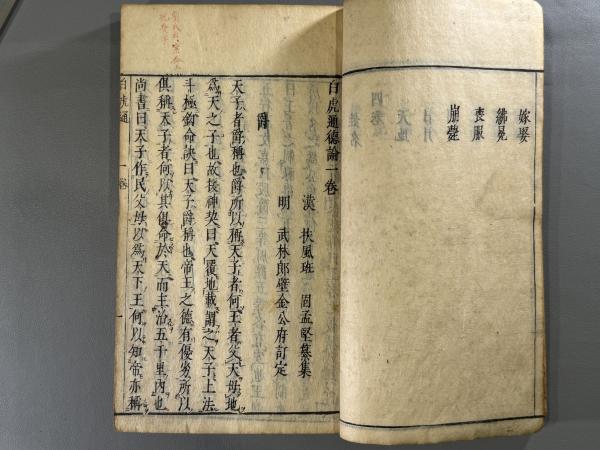 嫁娶
紼冕
喪服
崩薨
白虎通德論一卷
漢 扶風班 固孟堅纂集
明 武林郎壁金公府訂定
爵
天子者爵稱也爵所以稱天子者何王者父天母地
爲天之子也故援神契曰天覆地載謂之天子上法
斗極鉤命決曰天子爵稱也帝王之德有優劣所以
俱稱天子者何以其俱命於天而主治五千里內也
尚書曰天子作民父母以爲天下王何以知帝亦稱
白虎通 一卷 一